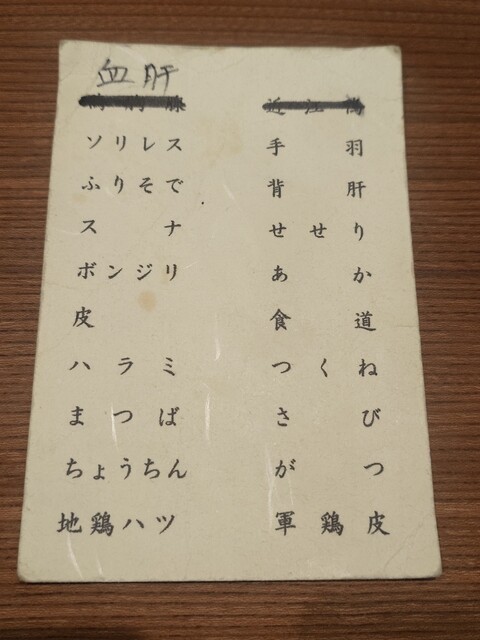 血肝
ソリレス
ふりそで
スナ
ボンジリ
皮
ハラミ
まつば
ちょうちん
地鶏ハツ
近江鴨
手羽
背肝
せせり
あか
食道
つくね
さび
がつ
軍鶏皮